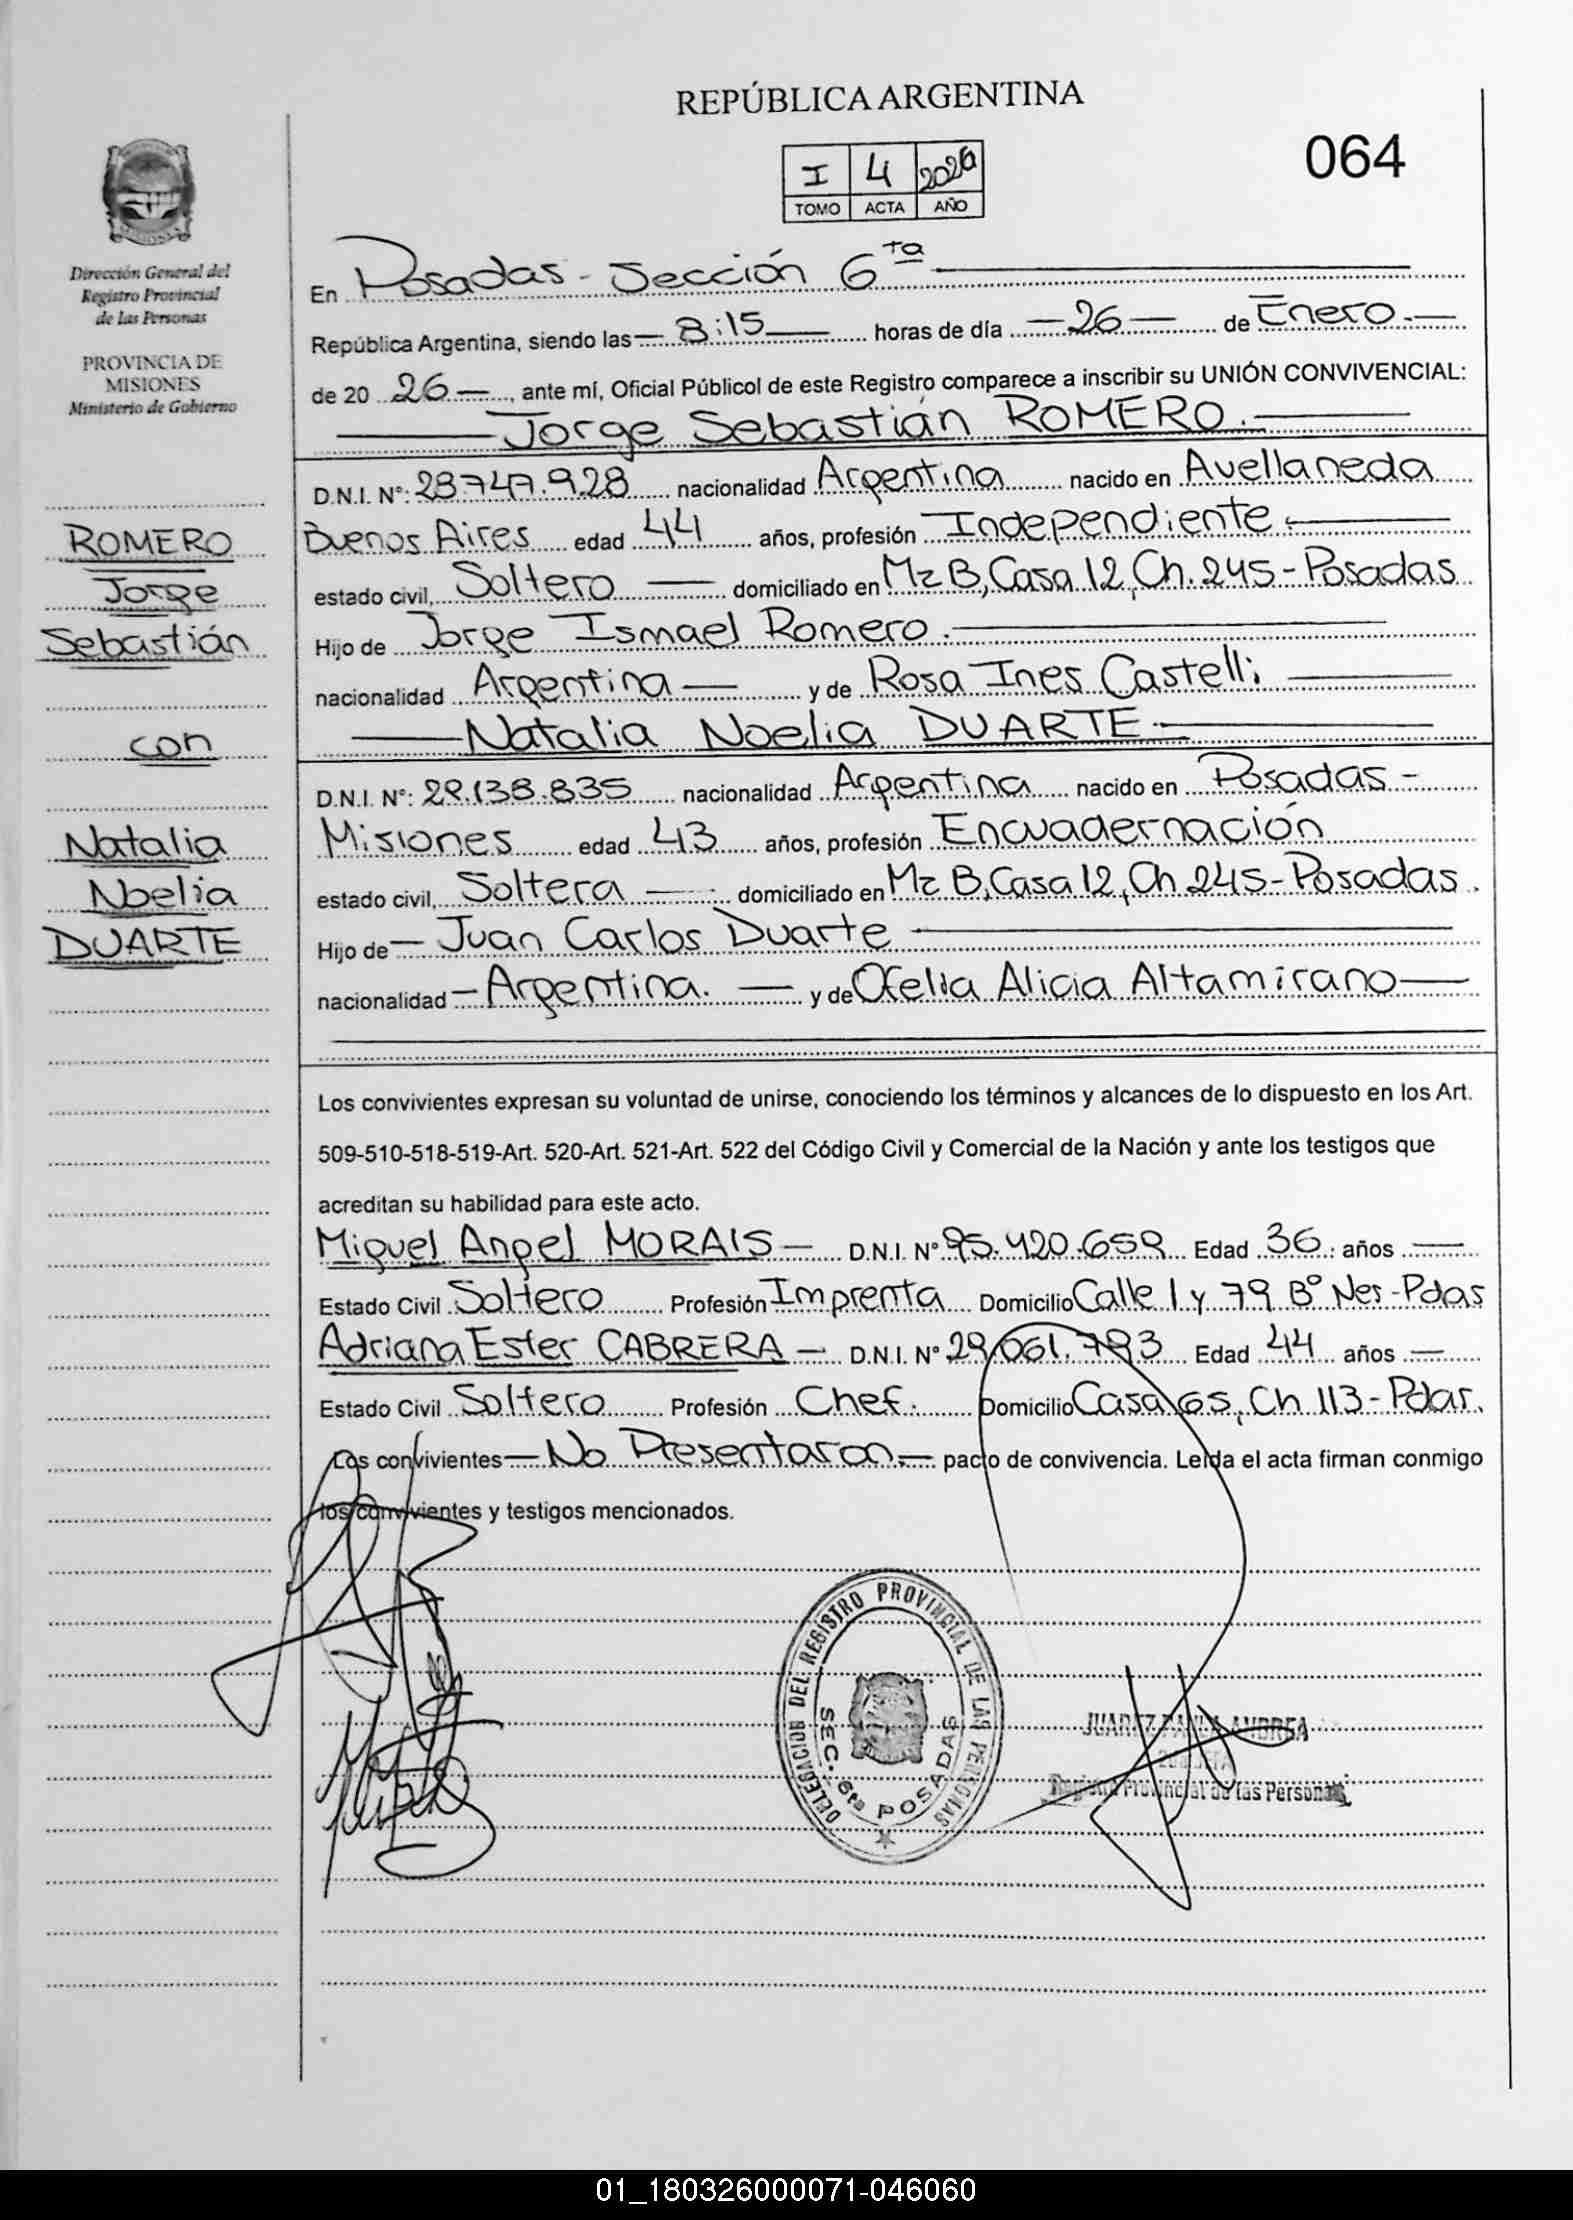 REPÚBLICA ARGENTINA
064
I 4 2026
TOMO ACTA AÑO
Dirección General del
Registro Provincial
de las Personas
PROVINCIA DE
MISIONES
Ministerio de Gobierno
ROMERO
Jorge
Sebastián
con
Natalia
Noelia
DUARTE
En Posadas - Sección 6ta
República Argentina, siendo las 8:15 horas de día 26 de Enero.
de 20 26, ante mí, Oficial Públicol de este Registro comparece a inscribir su UNIÓN CONVIVENCIAL:
Jorge Sebastián ROMERO.
D.N.I. N°: 28.747.928 nacionalidad Argentina nacido en Avellaneda
Buenos Aires edad 44 años, profesión Independiente.
estado civil, Soltero domiciliado en Mz B, Casa 12, Ch. 245 - Posadas
Hijo de Jorge Ismael Romero.
nacionalidad Argentina y de Rosa Ines Castelli
Natalia Noelia DUARTE.
D.N.I. N°: 29.138.835 nacionalidad Argentina nacido en Posadas -
Misiones edad 43 años, profesión Encuadernación
estado civil, Soltera domiciliado en Mz B, Casa 12, Ch 245 - Posadas.
Hijo de Juan Carlos Duarte
nacionalidad Argentina. y de Ofelia Alicia Altamirano
Los convivientes expresan su voluntad de unirse, conociendo los términos y alcances de lo dispuesto en los Art.
509-510-518-519-Art. 520-Art. 521-Art. 522 del Código Civil y Comercial de la Nación y ante los testigos que
acreditan su habilidad para este acto.
Miguel Angel MORAIS D.N.I. N° 95.420.659 Edad 36. años
Estado Civil Soltero Profesión Imprenta Domicilio Calle 1 y 79 B° Nes - Pdas
Adriana Ester CABRERA D.N.I. N° 29.061.793 Edad 44 años
Estado Civil Soltero Profesión Chef. Domicilio Casa 65, Ch 113 - Pdas.
Los convivientes No Presentaron. pacto de convivencia. Leída el acta firman conmigo
los convivientes y testigos mencionados.
DELEGACION DEL REGISTRO PROVINCIAL DE LAS PERSONAS
SEC. 6ta POSADAS
JUAREZ PAOLA ANDREA
Registro Provincial de las Personas
01_180326000071-046060